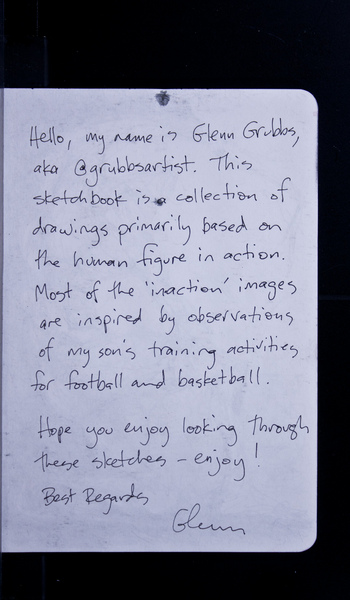 Hello, my name is Glenn Grubbs,
aka @grubbsartist. This
sketchbook is a collection of
drawings primarily based on
the human figure in action.
Most of the 'inaction' images
are inspired by observations
of my son's training activities
for football and basketball.
Hope you enjoy looking through
these sketches - enjoy!
Best Regards
Glenn